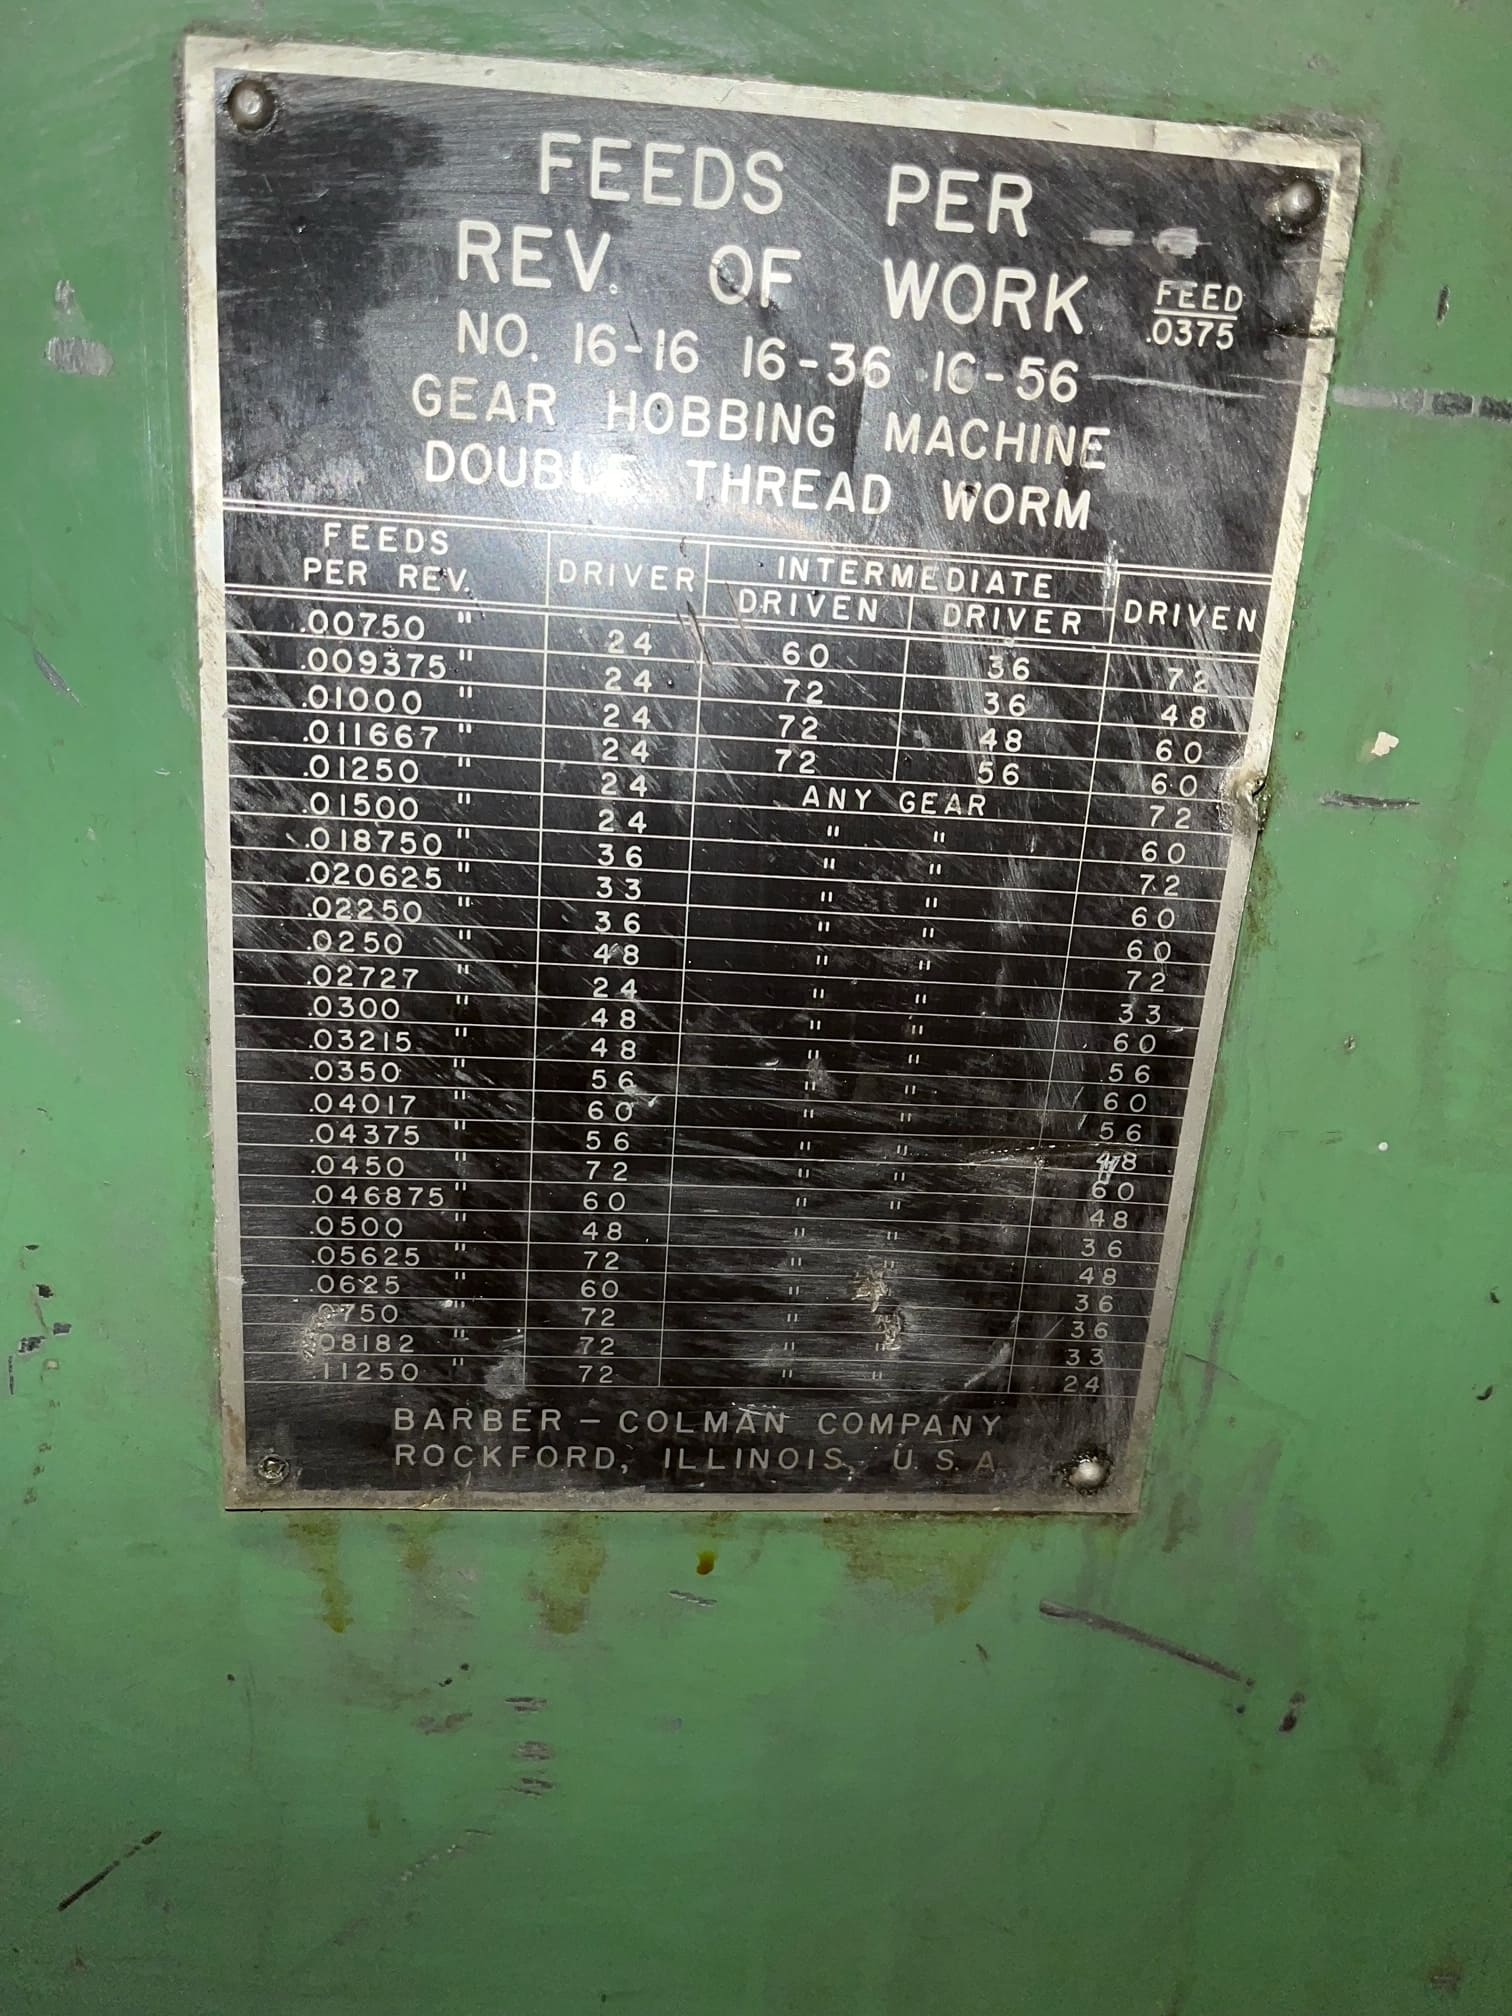 FEEDS PER
REV. OF WORK
FEED
.0375
NO. 16-16 16-36 16-56
GEAR HOBBING MACHINE
DOUBLE THREAD WORM
FEEDS PER REV. DRIVER INTERMEDIATE DRIVEN
DRIVEN DRIVER
.00750 " 24 60 36 72
.009375 " 24 72 36 48
.01000 " 24 72 48 60
.011667 " 24 72 56 60
.01250 " 24 ANY GEAR 72
.01500 " 24 " " 60
.018750 " 36 " " 72
.020625 " 33 " " 60
.02250 " 36 " " 60
.0250 " 48 " " 72
.02727 " 24 " " 33
.0300 " 48 " " 60
.03215 " 48 " " 56
.0350 " 56 " " 60
.04017 " 60 " " 56
.04375 " 56 " " 48
.0450 " 72 " " 60
.046875 " 60 " " 48
.0500 " 48 " " 36
.05625 " 72 " " 48
.0625 " 60 " " 36
.0750 " 72 " " 36
.08182 " 72 " " 33
.11250 " 72 " " 24
BARBER - COLMAN COMPANY
ROCKFORD, ILLINOIS, U. S. A.